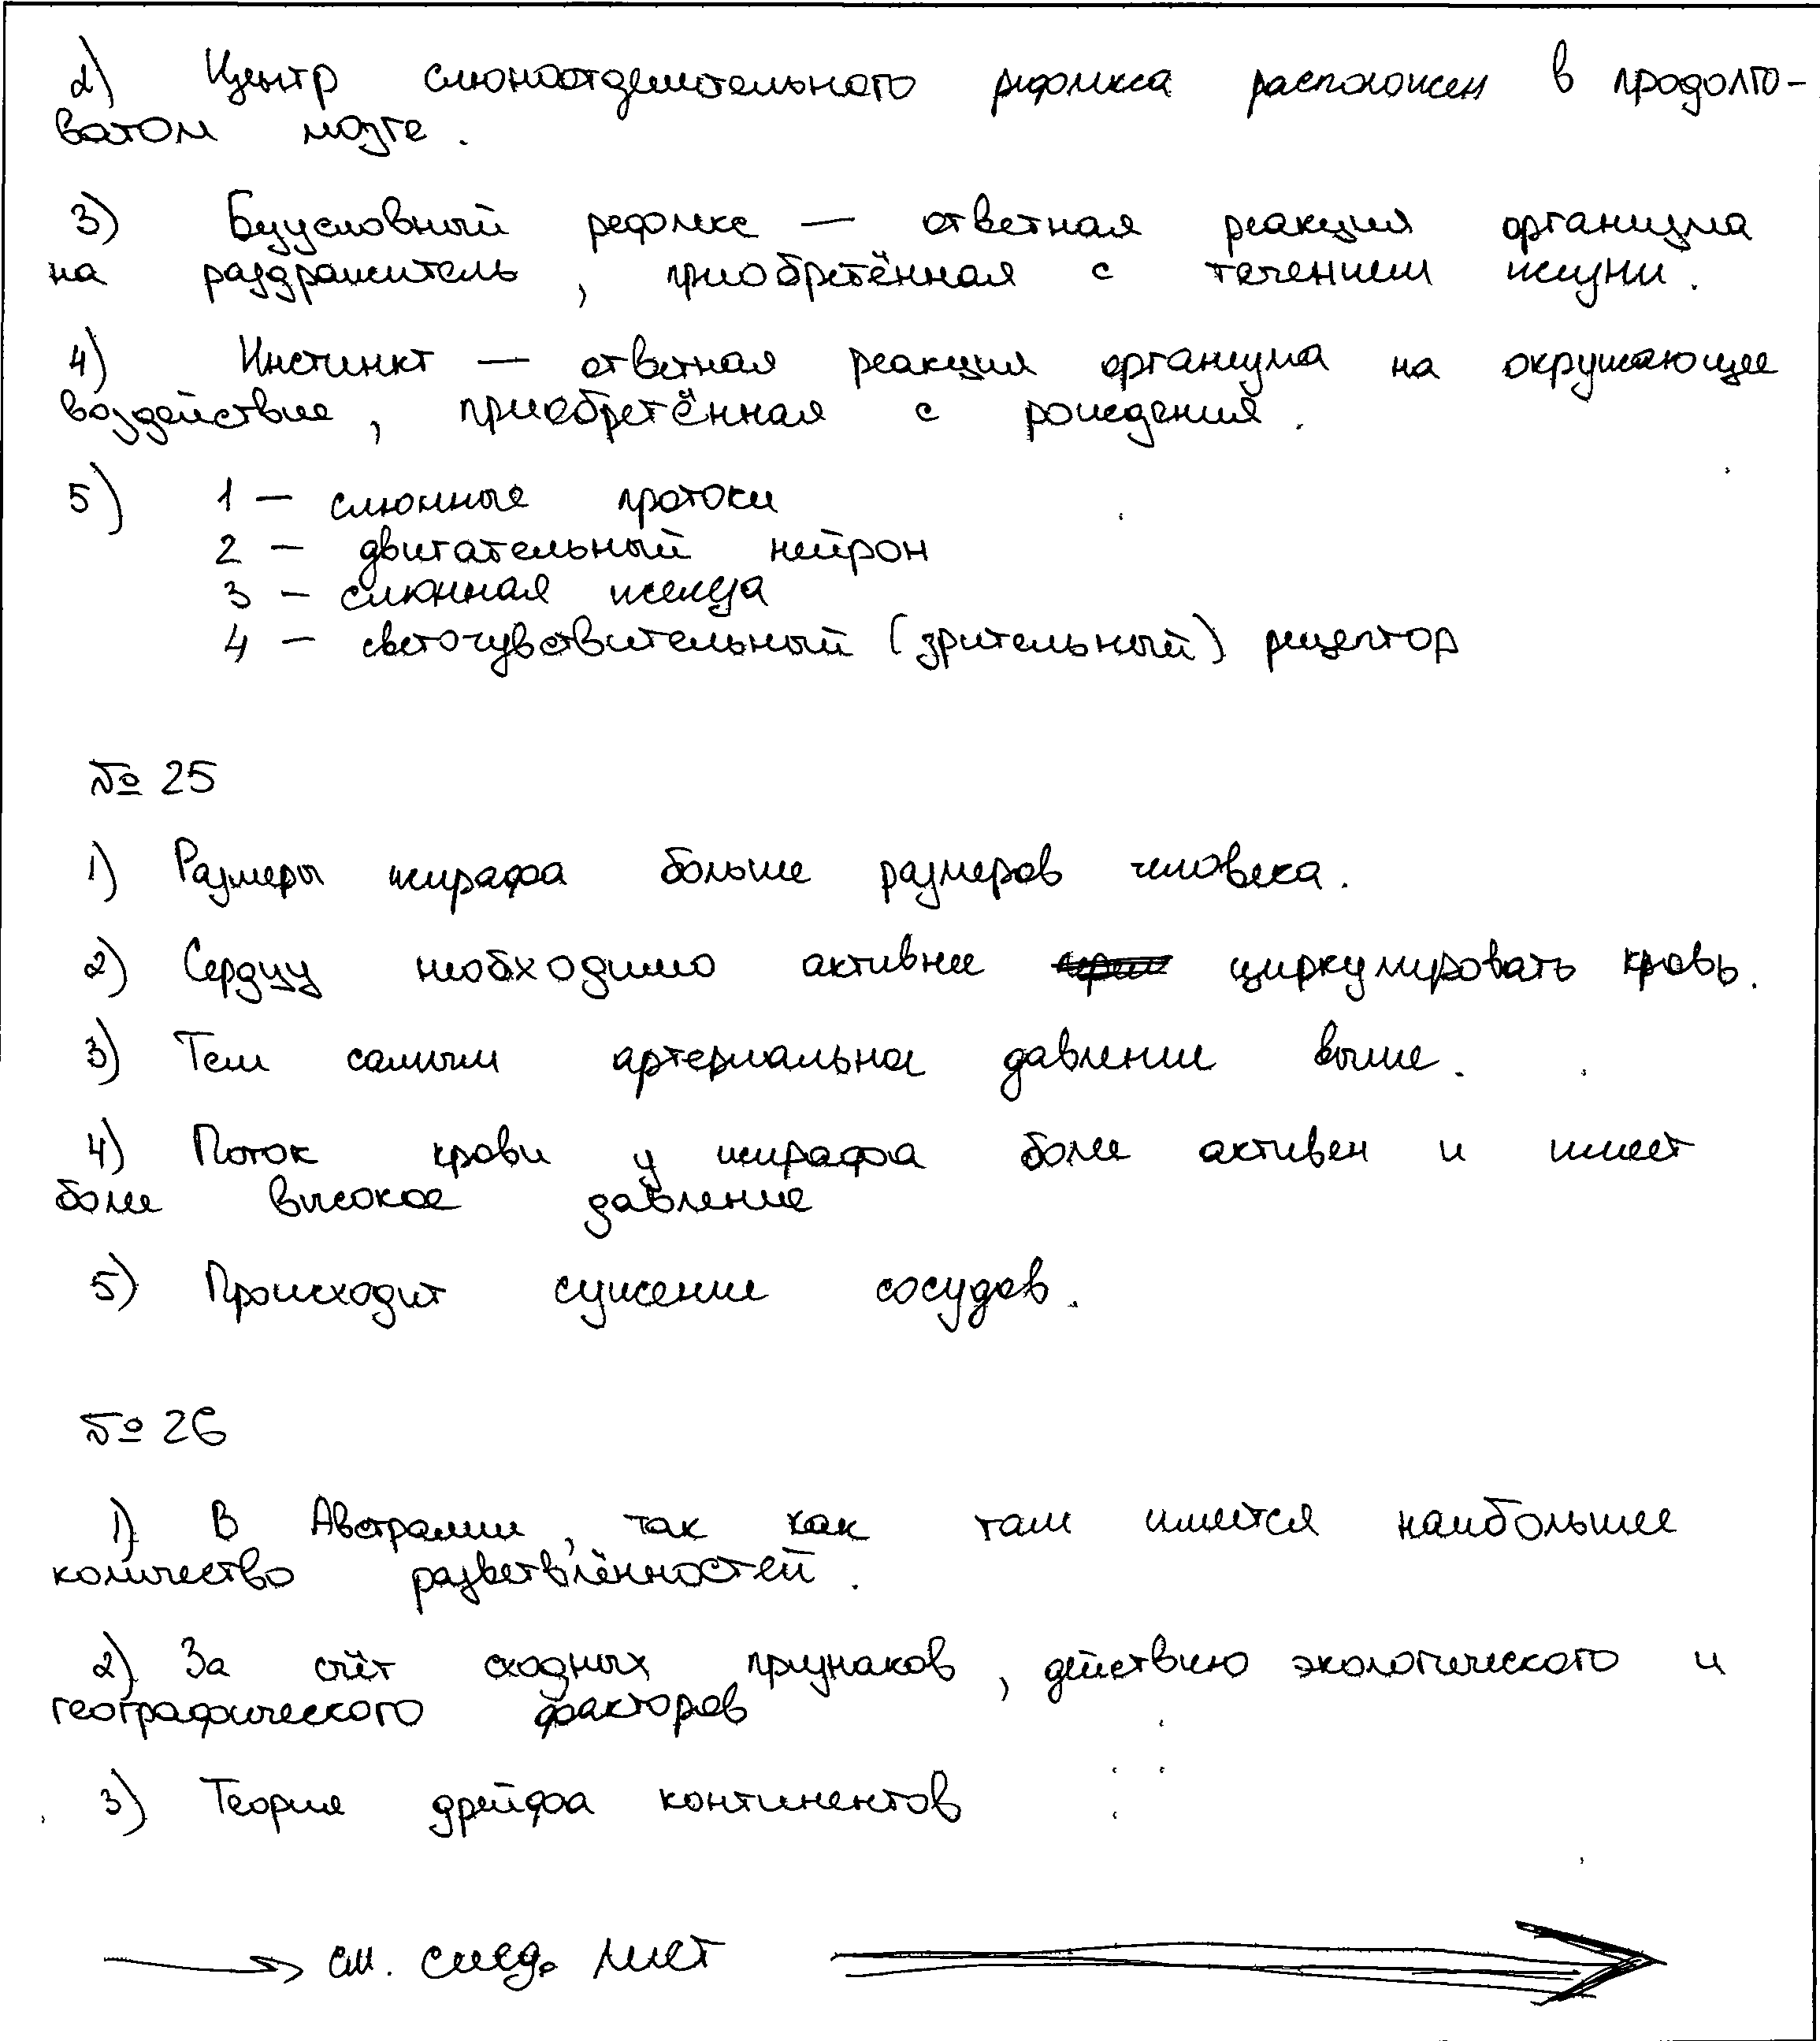 2) Центр слюноотделительного рефлекса расположен в продолго-
ватом мозге.
3) Безусловный рефлекс — ответная реакция организма
на раздражитель, приобретённая с течением жизни.
4) Инстинкт — ответная реакция организма на окружающее
воздействие, приобретённая с рождения.
5) 1 — слюнные протоки
2 — двигательный нейрон
3 — слюнная железа
4 — светочувствительный (зрительный) рецептор
№ 25
1) Размеры жирафа больше размеров человека.
2) Сердцу необходимо активнее циркулировать кровь.
3) Тем самым артериальное давление выше.
4) Поток крови у жирафа более активен и имеет
более высокое давление
5) Происходит сужение сосудов.
№ 26
1) В Австралии, так как там имеется наибольшее
количество разветвлённостей.
2) За счёт сходных признаков, действию экологического и
географического факторов
3) Теория дрейфа континентов
см. след. лист